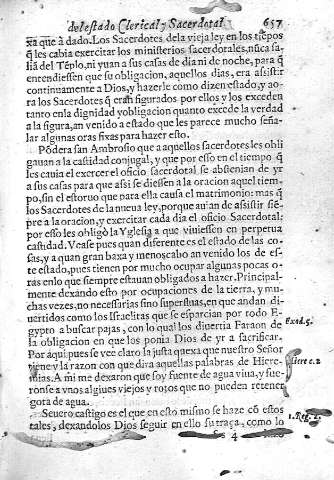 del estado Clerical, y Sacerdotal. 657
xa que à dado. Los Sacerdotes dela vieja ley en los tiẽpos
q̃ les cabia exercitar los ministerios sacerdotales, nũca sa-
liã del Tẽplo, ni yuan a sus casas de dia ni de noche, para q̃
entendiessen que su obligacion, aquellos dias, era assistir
continuamente a Dios, y hazerle como dizen estado, y ao-
ra los Sacerdotes q̃ eran figurados por ellos y los exceden
tanto enla dignidad y obligacion quanto excede la verdad
a la figura, an venido a estado que les parece mucho seña-
lar algunas oras fixas para hazer esto.
Põdera san Ambrosio que a aquellos sacerdotes les obli
gauan a la castidad conjugal, y que por esso en el tiempo q̃
les cauia el exercer el oficio sacerdotal se abstenian de yr
a sus casas para que assi se diessen a la oracion aquel tiem-
po, sin el estoruo que para ella causa el matrimonio: mas q̃
los Sacerdotes de la nueva ley, porque auian de assistir siẽ-
pre a la oracion, y exercitar cada dia el oficio Sacerdotal:
por esso les obligò la Yglesia a que viuiessen en perpetua
castidad. Vease pues quan diferente es el estado de las co-
sas, y a quan gran baxa y menoscabo an venido los de es-
te estado, pues tienen por mucho ocupar algunas pocas o-
ras enlo que siempre estauan obligados a hazer. Principal-
mente dexando esto por ocupaciones de la tierra, y mu-
chas vezes, no necessarias sino superfluas, en que andan di-
uertidos como los Israelitas que se esparcian por todo E-
gypto a buscar pajas, con lo qual los diuertia Faraon de
la obligacion en que los ponia Dios de yr a sacrificar.
Exod. 5.
Por aqui pues se vee claro la justa quexa que nuestro Señor
tiene y la razon con que dira aquellas palabras de Hiere-
miere c. 2
mias. A mi me dexaron que soy fuente de agua viua, y fue-
ronse a vnos algiues viejos y rotos que no pueden retener
gora de agua.
Seuero castigo es el que en esto mismo se haze cõ estos
1. Reg. 2.
tales, dexandolos Dios seguir en ello su traça, como lo
4